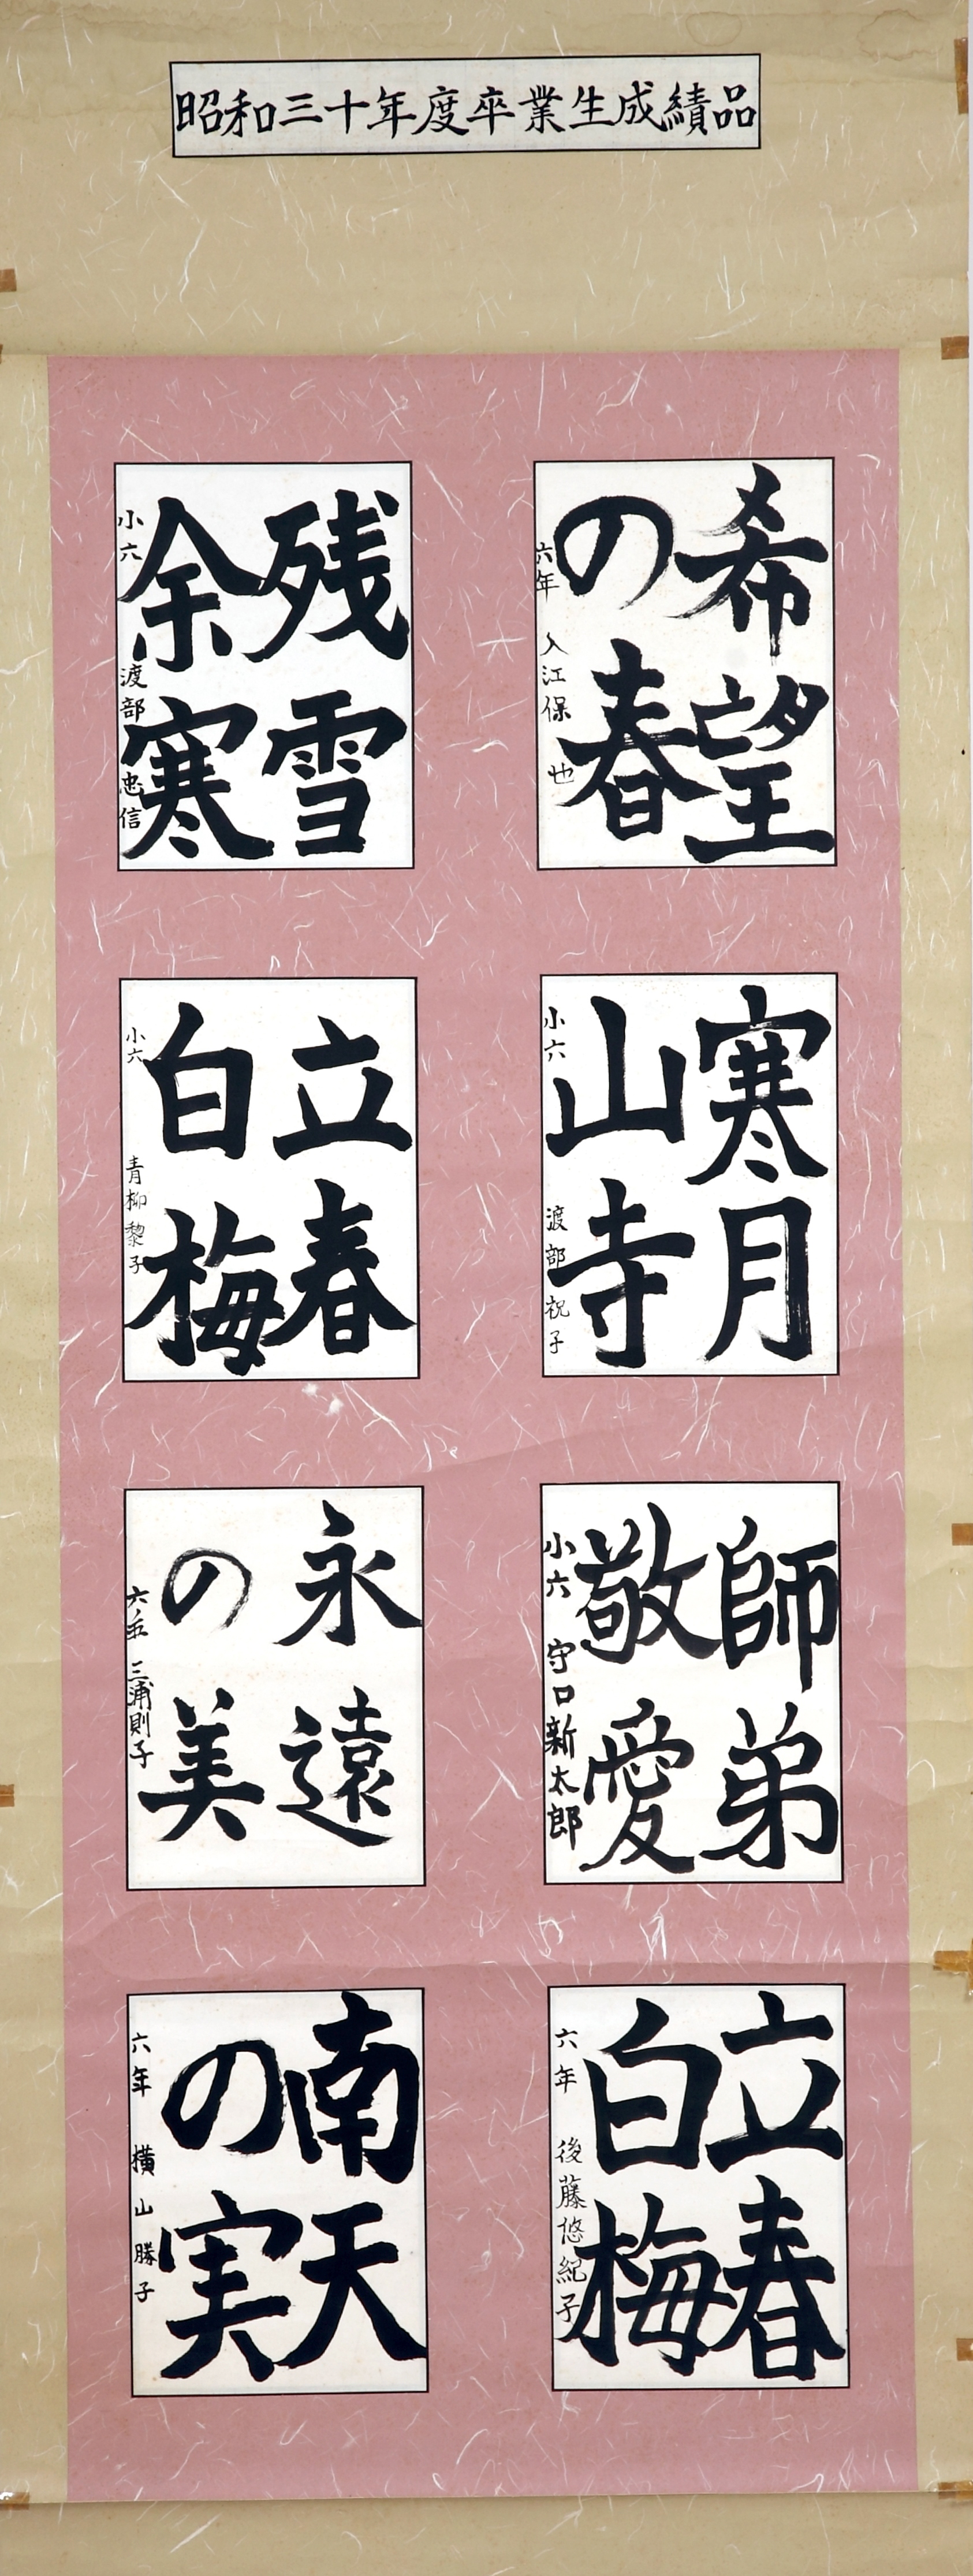 昭和三十年度卒業生成績品
希望
の春
六年 入江保也
残雪
余寒
小六 渡部忠信
寒月
山寺
小六 渡部祝子
立春
白梅
小六 青柳黎子
師弟
敬愛
小六 守口新太郎
永遠
の美
六年 三浦則子
立春
白梅
六年 後藤悠紀子
南天
の実
六年 横山勝子